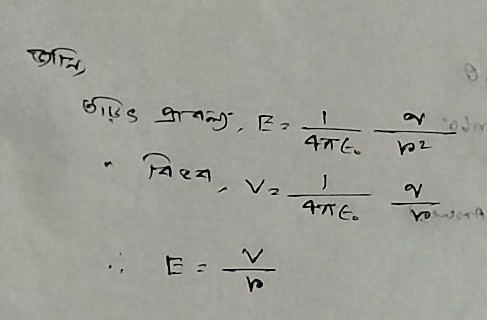 জানি,
তড়িৎ প্রাবল্য, E = 1/4πϵ₀ q/r²
" বিভব, V = 1/4πϵ₀ q/r
∴ E = V/r